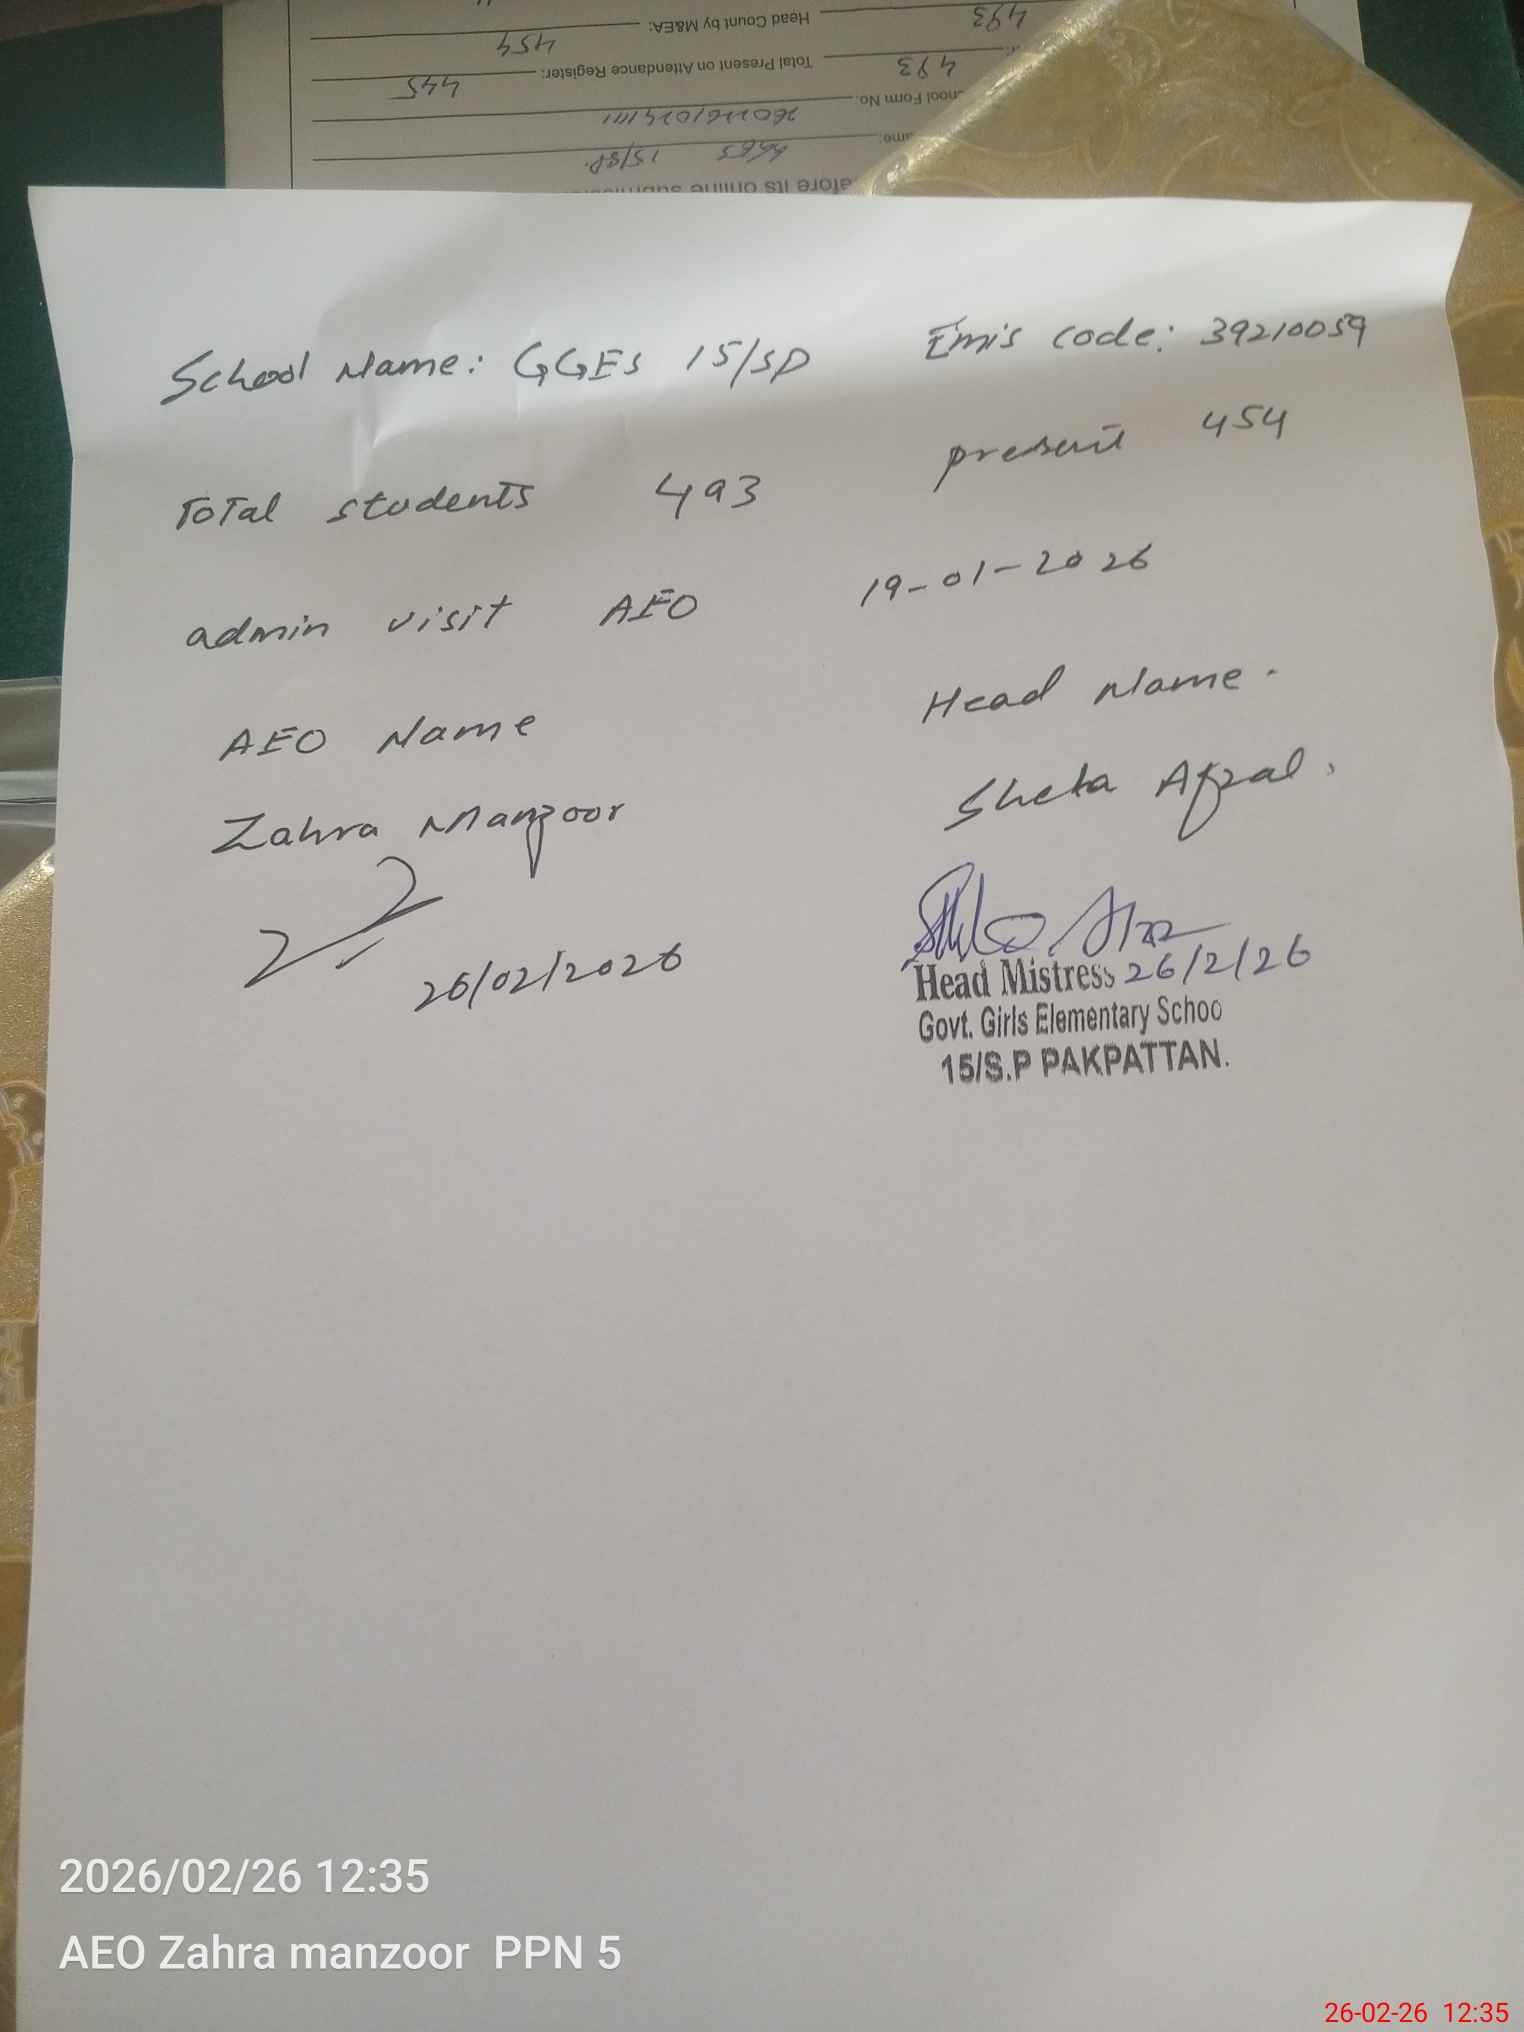 Head Count by M&EA: 454
493
Total Present on Attendance Register: 445
493
hool Form No. 
ame: GGES 15/SP.
efore its online
School Name: GGES 15/SP Emis code: 39210059
Total students 493 present 454
admin visit AEO 19-01-2026
AEO Name Head Name.
Zahra Manzoor Sheta Afzal.
26/02/2026
Head Mistress 26/2/26
Govt. Girls Elementary Schoo
15/S.P PAKPATTAN.
2026/02/26 12:35
AEO Zahra manzoor PPN 5
26-02-26 12:35